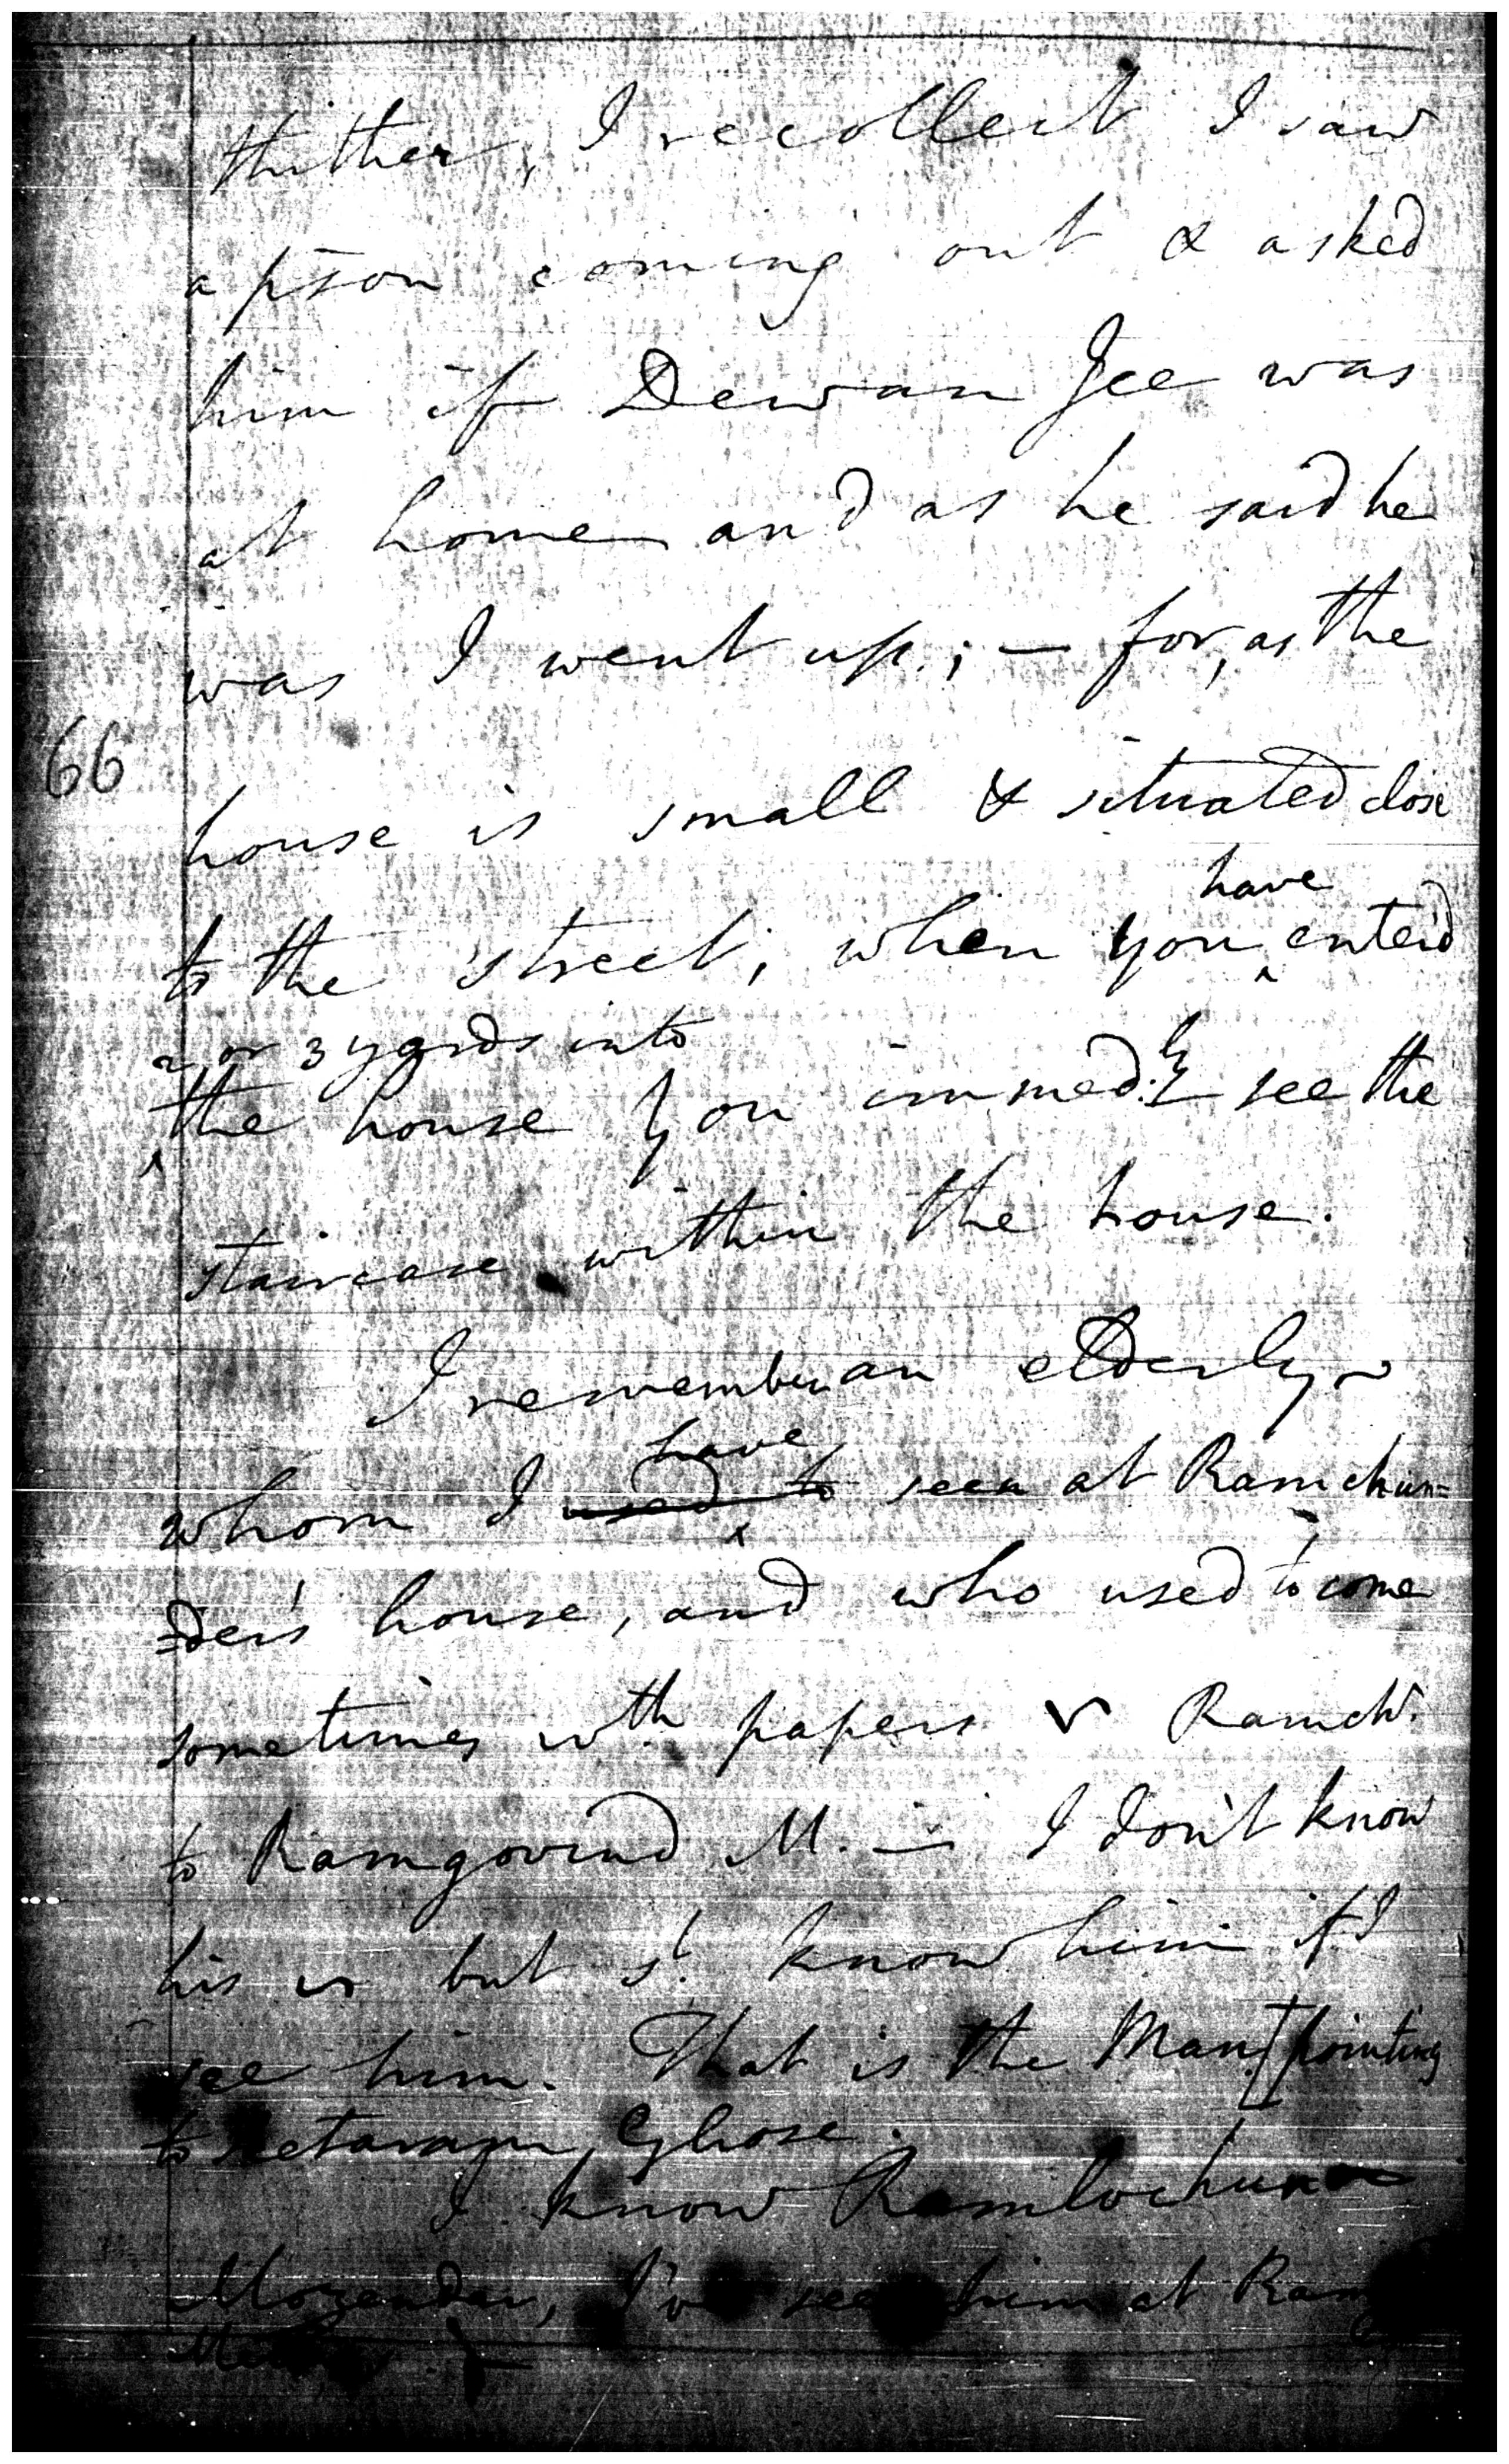 thither, I recollect I saw
a pson coming out & asked
him if Dewan Jee was
at home and as he said he
was I went up; — for, as the
66
house is small & situated close
have
to the street, when you ^ enter'd
2 or 3 yards into
^ the house you immed.ly see the
staircase within the house.
I remember an elderly
have
whom I used to ^ seen at Ramchun=
=der's house, and who used to come
sometimes wth papers Ramch.
to Ramgovind M. — I don't know
his but sd. know him if I
see him. That is the Man [pointing
to Setaram Ghose.
I know Ramlochun
Mozendar, I've seen him at Ram